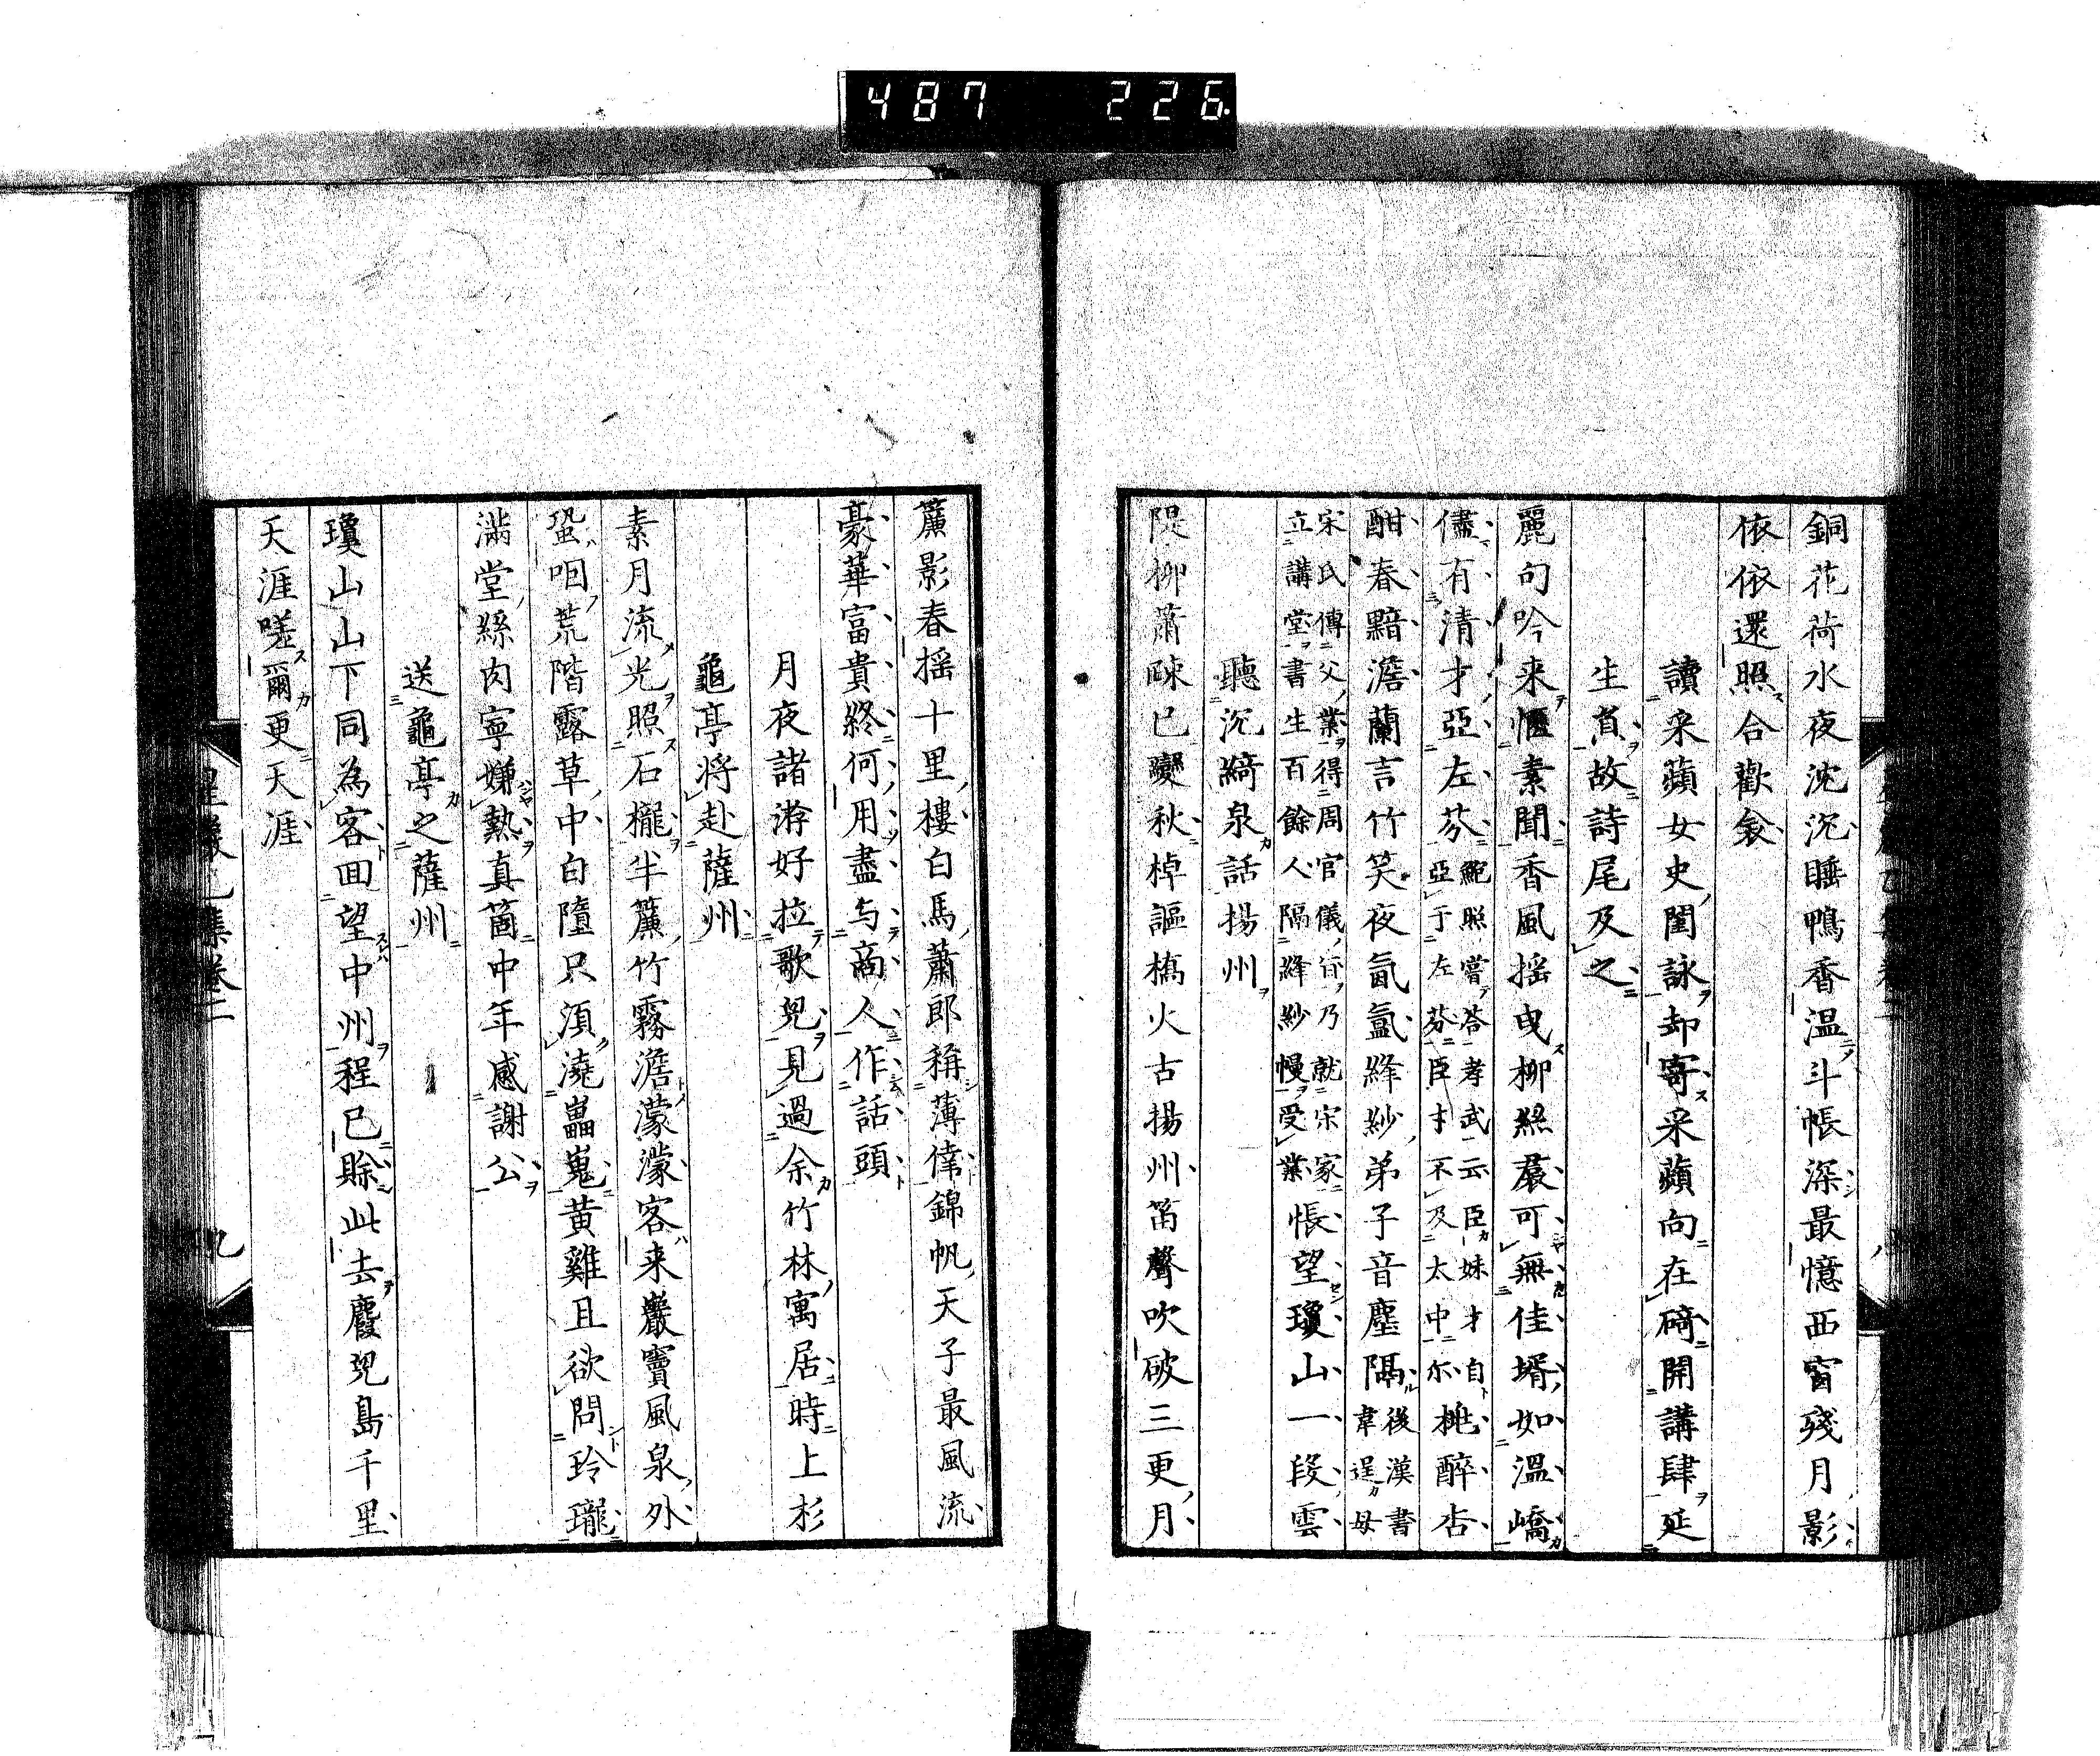 487 226
銅花荷水夜沈沉睡鴨香温斗帳深最憶西窗殘月影
依依還照合歡衾
讀采蘋女史閨詠却寄采蘋向在碕開講肆延
生負故詩尾及之
麗句吟来愜素聞香風揺曳柳絲裠可無佳壻如温嶠
儘有清才亞左芬鮑照嘗答孝武云臣妹才自亞于左芬臣才不及太中尓桃醉杏
酣春黯澹蘭言竹笑夜氤氳絳紗弟子音塵隔後漢書韋逞母
宋氏傳父業得周官儀乃就宋家立講堂書生百餘人隔絳紗幔受業悵望瓊山一段雲
聽沉綺泉話揚州
隄柳蕭疎已變秋棹謳樵火古揚州笛聲吹破三更月
簾影春揺十里樓白馬蕭郎稱薄倖錦帆天子最風流
豪華富貴終何用盡与商人作話頭
月夜諸游好拉歌兒見過余竹林寓居時上杉
龜亭将赴薩州
素月流光照石櫳半簾竹霧澹濛濛客来巖竇風泉外
蛩咽荒階露草中白墮只湏澆磊嵬黄雞且欲問玲瓏
滿堂絲肉寧嫌熱真箇中年感謝公
送龜亭之薩州
瓊山山下同為客回望中州程已賖此去麑兒島千里
天涯嗟爾更天涯
星巖乙集卷二
九